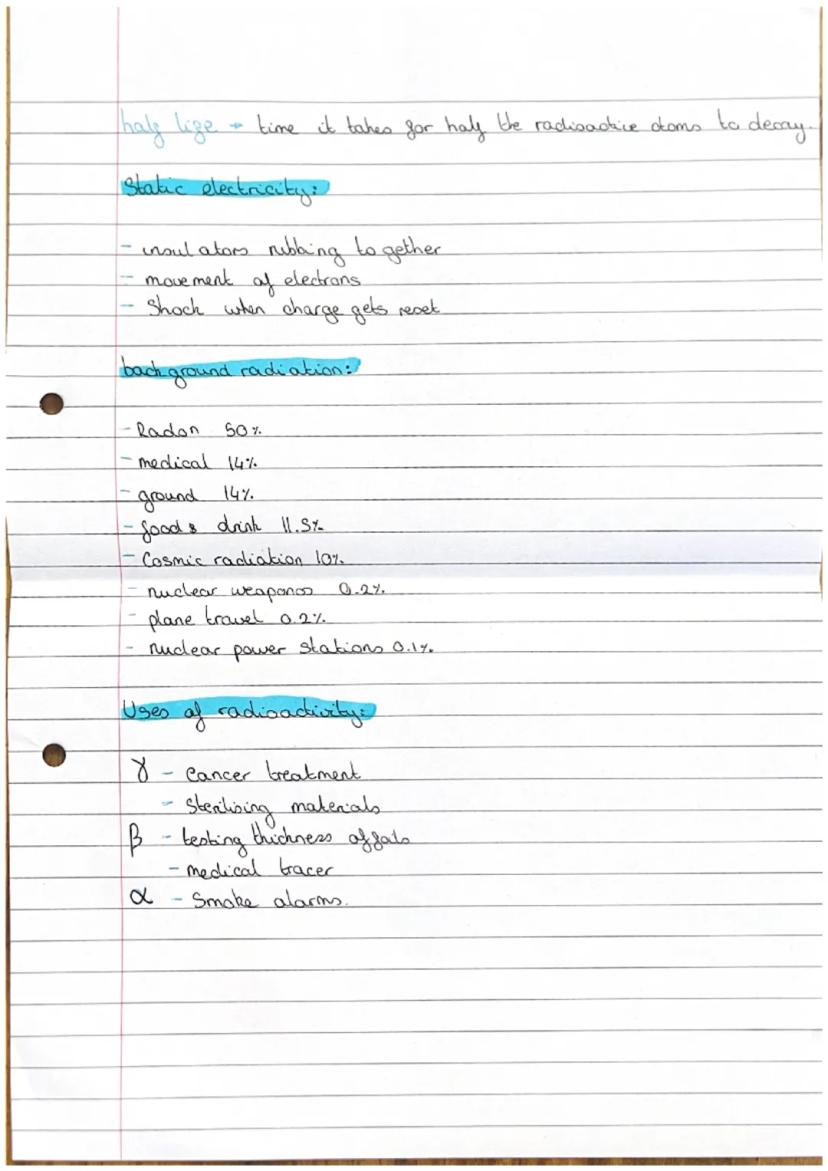 half life → time it takes for half the radioactive atoms to decay.
Static electricity:
- insulators rubbing together
- movement of electrons
- Shock when charge gets reset
background radiation:
- Radon 50%
- medical 14%
- ground 14%
- food & drink 11.5%
- Cosmic radiation 10%
- nuclear weapons 0.2%
- plane travel 0.2%
- nuclear power stations 0.1%
Uses of radioactivity:
γ - cancer treatment
- Sterilising materials
β - testing thickness of
- medical tracer
α - Smoke alarms.